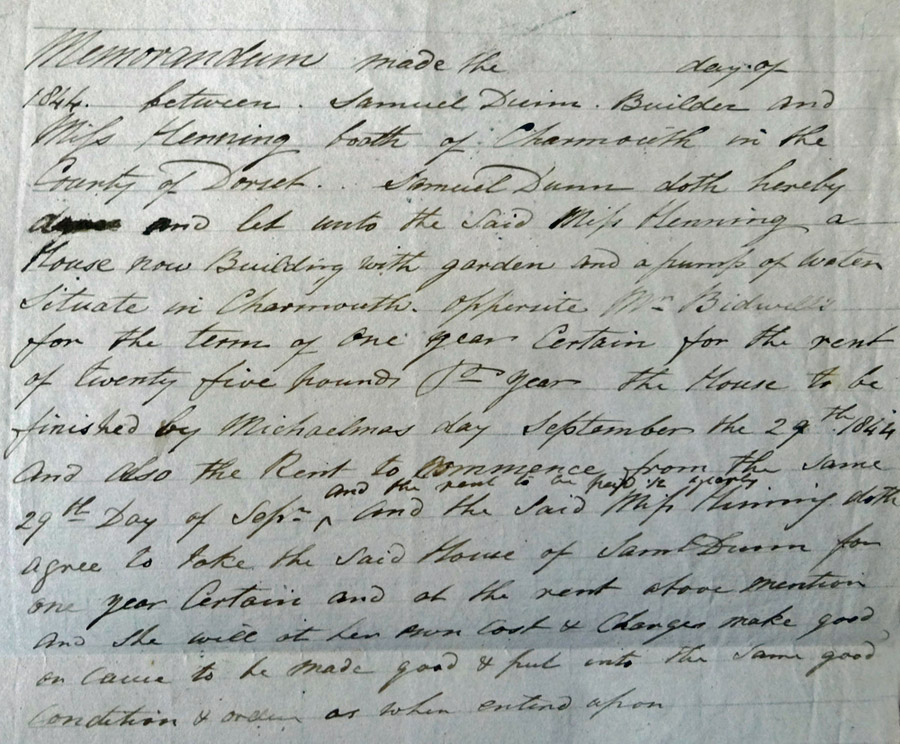 Memorandum made the day of
1844. between. Samuel Dunn. Builder and
Miss Henning booth of Charmouth in the
County of Dorset. . Samuel Dunn doth hereby
and let unto the said Miss Henning a
House now Building with garden and a pump of water
Situate in Charmouth. Oppersite Mr Bidwells
for the term of one year Certain for the rent
of twenty five pounds Pr year the House to be
finished by Michaelmas day September the 29th 1844
And also the Rent to Commence from the same
and the rent to be paid
29th Day of Sepr ^ And the said Miss Henning doth
agree to take the said House of Saml Dunn for
one year Certain and at the rent above mention
and she will at her own Cost & Charges make good
or cause to be made good & put into the same good
Condition & order as when entered upon